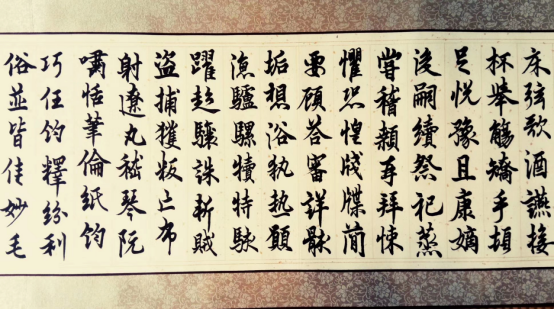 床弦歌酒讌接
杯舉觴矯手頓
足悅豫且康嫡
後嗣續祭祀蒸
嘗稽顙再拜悚
懼恐惶牋牒簡
要顧答審詳骸
垢想浴執熱願
涼驢騾犢特駭
躍超驤誅斬賊
盜捕獲叛亡布
射遼丸嵇琴阮
嘯恬筆倫紙鈞
巧任釣釋紛利
俗並皆佳妙毛